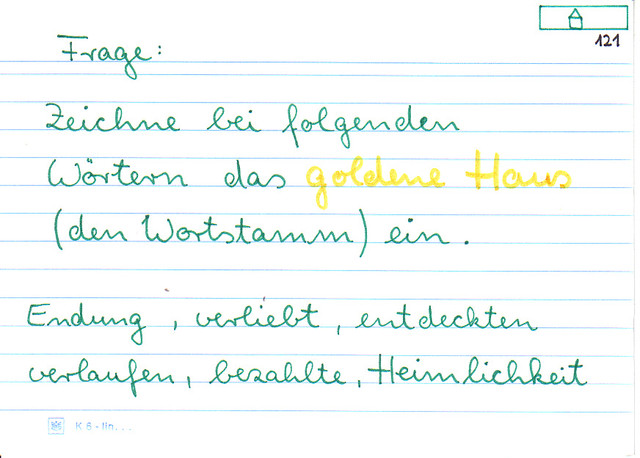 121
Frage:
Zeichne bei folgenden
Wörtern das goldene Haus
(den Wortstamm) ein.
Endung, verliebt, entdeckten
verlaufen, bezahlte, Heimlichkeit
K 6 - lin...